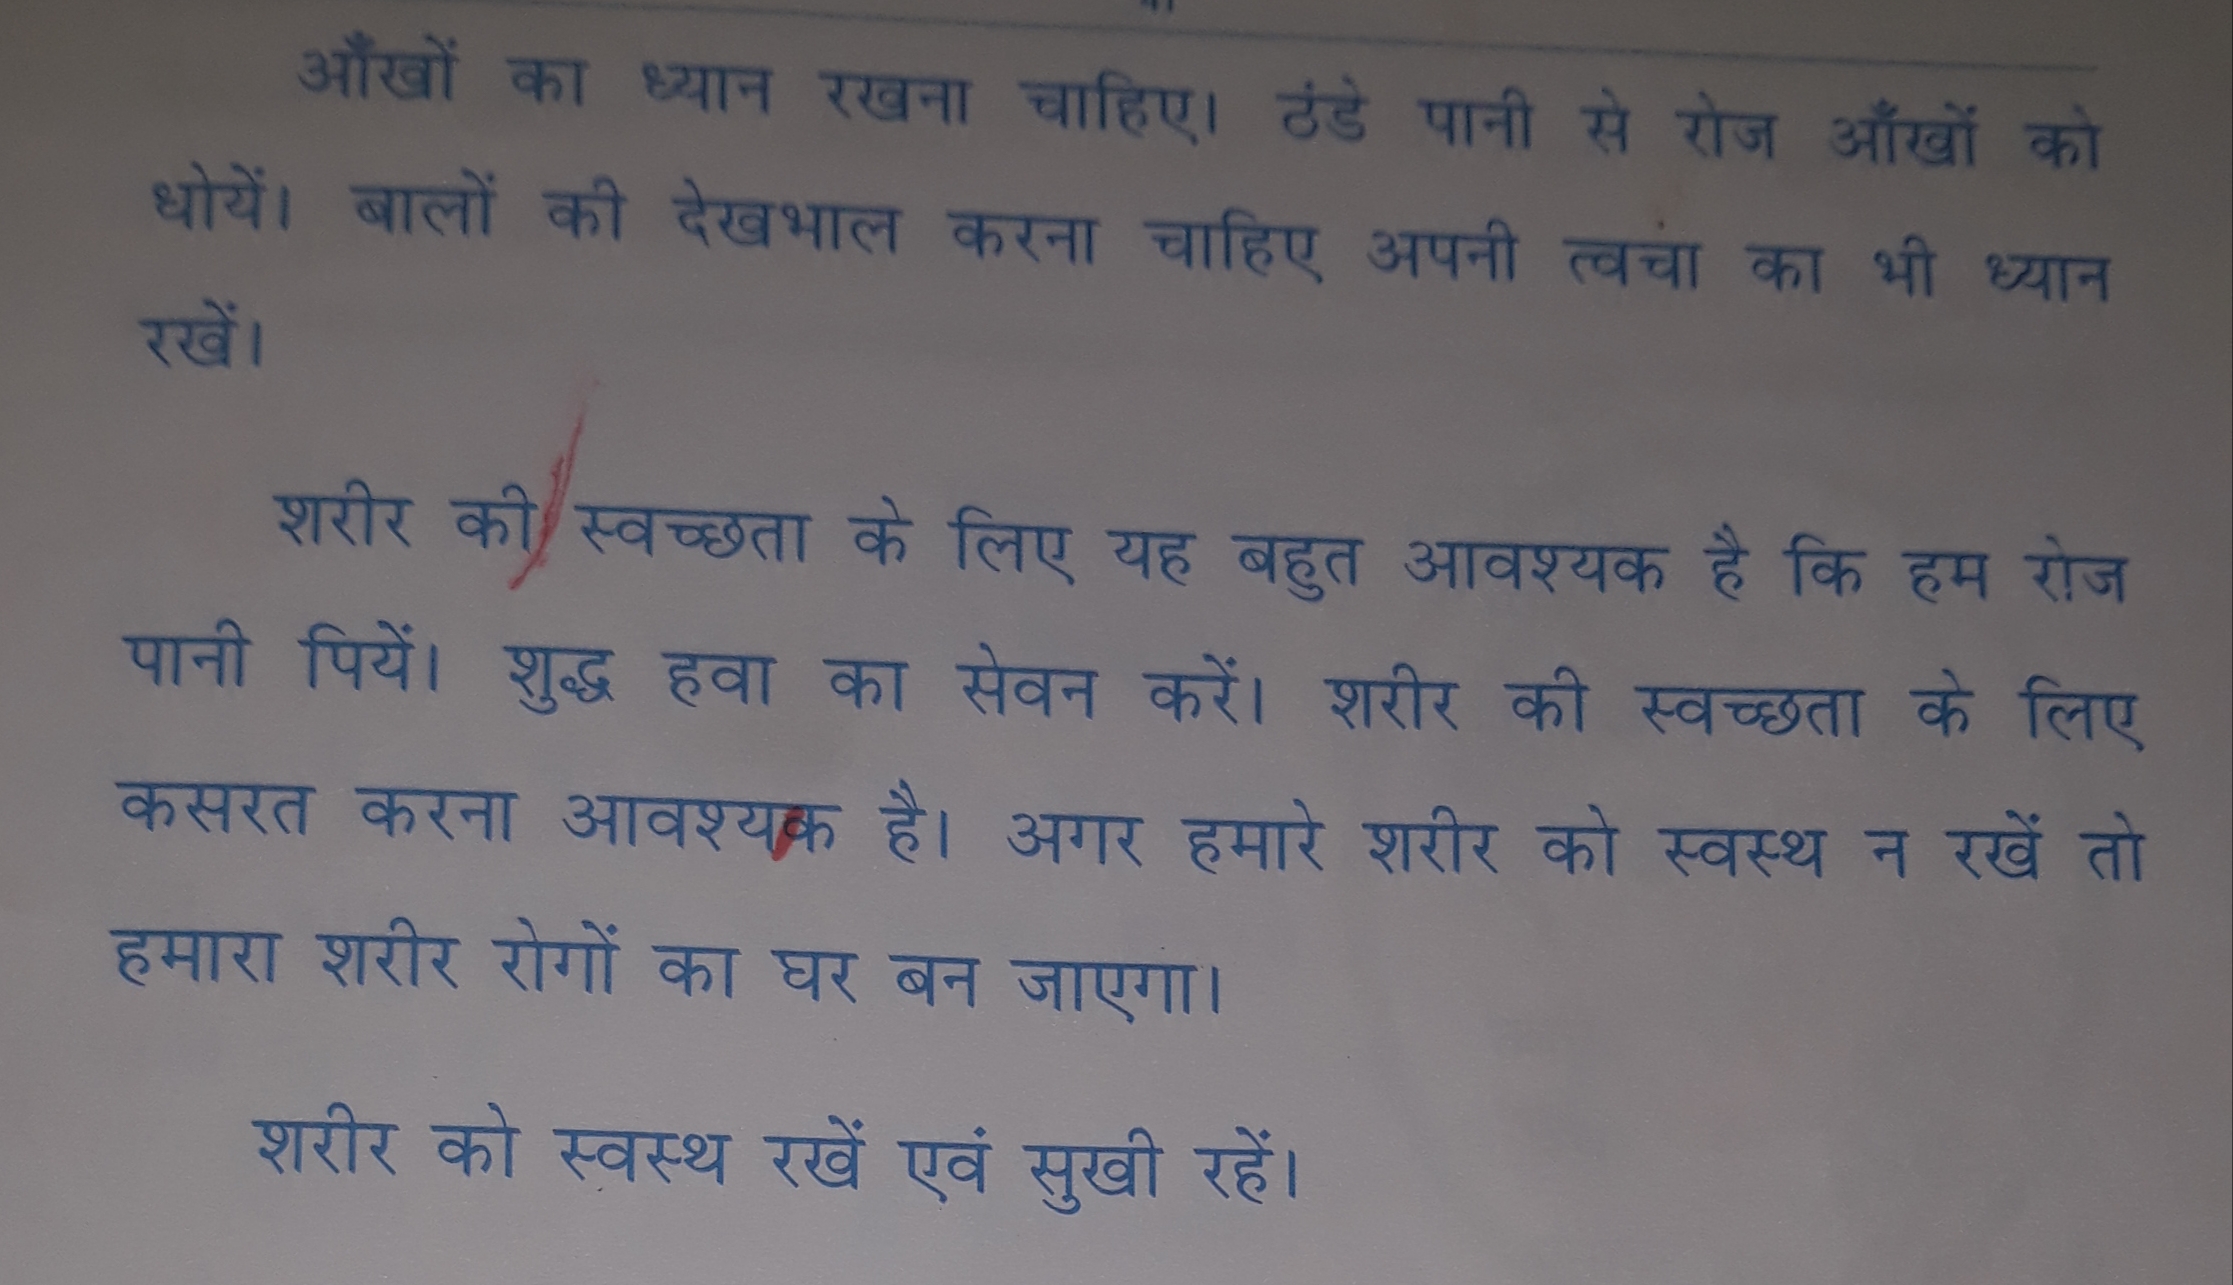 आँखों का ध्यान रखना चाहिए। ठंडे पानी से रोज आँखों को
धोयें। बालों की देखभाल करना चाहिए अपनी त्वचा का भी ध्यान
रखें।
शरीर की स्वच्छता के लिए यह बहुत आवश्यक है कि हम रोज
पानी पियें। शुद्ध हवा का सेवन करें। शरीर की स्वच्छता के लिए
कसरत करना आवश्यक है। अगर हमारे शरीर को स्वस्थ न रखें तो
हमारा शरीर रोगों का घर बन जाएगा।
शरीर को स्वस्थ रखें एवं सुखी रहें।